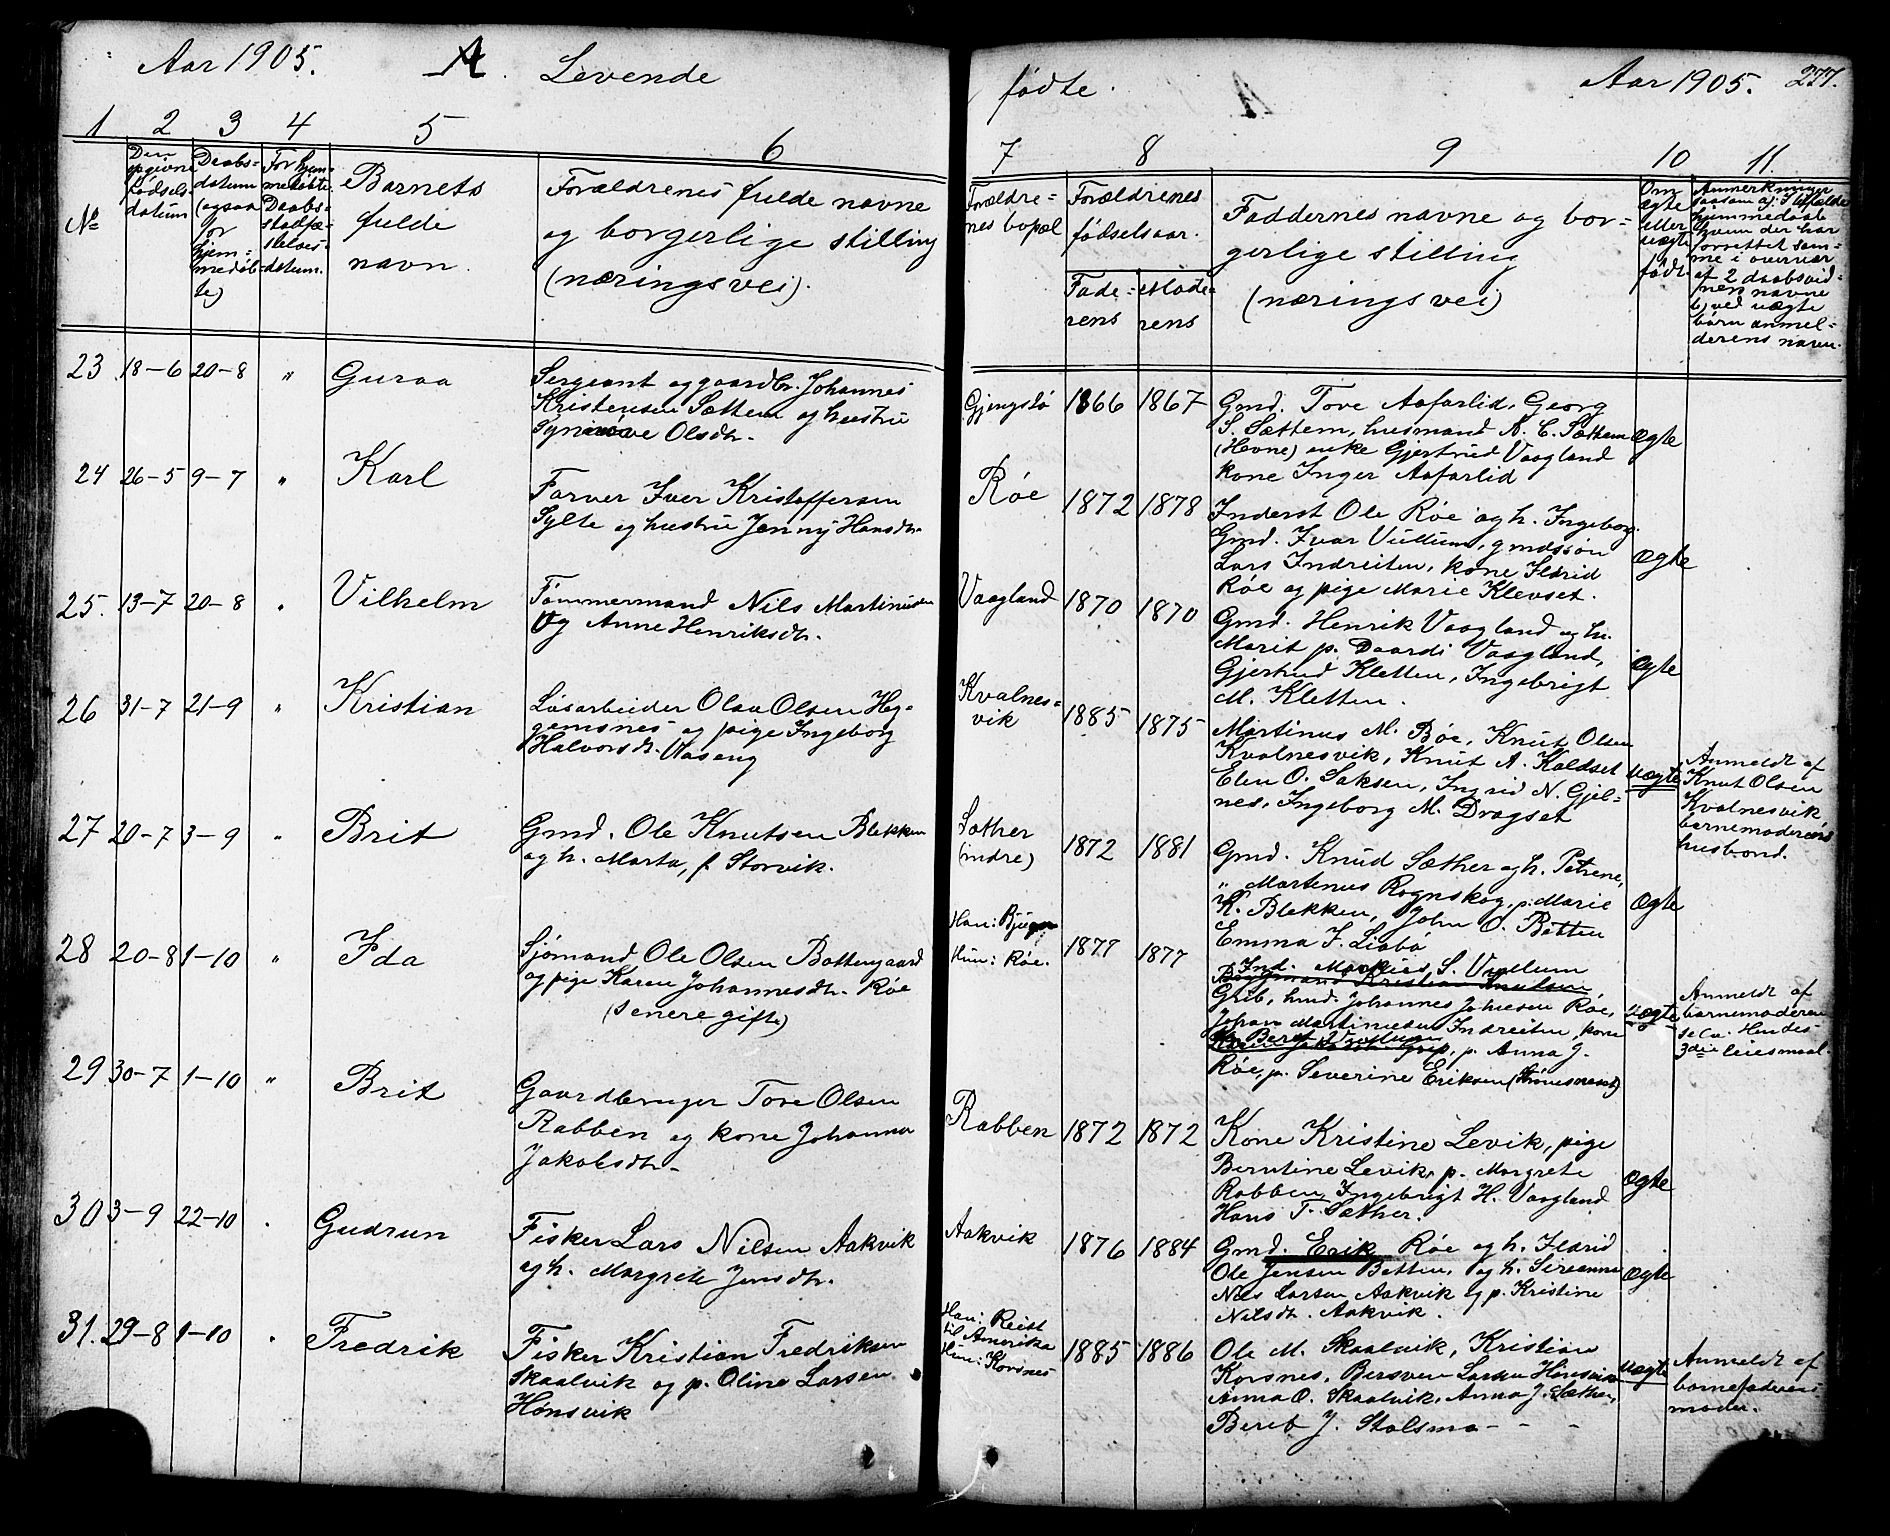 Aar 1905. A. Levende
1 2 3 4 5 6
№
Den opgivne fødsels-datum
Daabs-datum (ogsaa for hjem-medøb-te)
For hjem-medøbte Daabs-stadfæ-stelses-datum.
Barnets
fulde
navn.
Forældrenes fulde navne
og borgerlige stilling
(næringsvei).
23 18-6 20-8 " Guraa
Sergeant og gaardbr. Johannes
Kristensen Sættem og hustru
Synnøve Olsdtr.
24 26-5 9-7 " Karl
Farver Iver Kristoffersen
Sylte og hustru Jenny Hansdtr.
25. 13-7 20-8 " Vilhelm
Tømmermand Nils Martinusen
Og Anne Henriksdtr.
26 31-7 21-9 " Kristian
Løsarbeider Olaus Olsen Heg-
gemsnes og pige Ingeborg
Halvorsdtr. Vaseng
27 20-7 3-9 " Brit
Gmd. Ole Knutsen Blekken
og h. Marta, f. Storvik.
28 20-8 1-10 " Ida
Sjømand Ole Olsen Bottengaard
og pige Karen Johannesdtr. Røe
(senere gifte)
29 30-7 1-10 " Brit
Gaardbruger Tore Olsen
Rabben og kone Johanna
Jakobsdtr.
30 3-9 22-10 " Gudrun
Fisker Lars Nilsen Aakvik
og h. Margrete Jensdtr.
31. 29-8 1-10 " Fredrik
Fisker Kristian Fredriksen
Skaalvik og p. Oline Larsen
Hønsvik
fødte. Aar 1905. 277.
7 8 9 10 11.
Forældre-
nes bopæl
Forældrenes
fødselsaar.
Fade-
rens
Mode-
rens
Faddernes navne og bor-
gerlige stilling
(næringsvei)
Om
ægte
eller
uægte
født.
Anmerkninger
saasom a) i tilfælde
hjemmedaab
hvem der har
forrettet sam-
me i overvær
af 2 daabsvid-
ners navne
b) ved uægte
børn anmel-
derens navn.
Gjengstø 1866 1867
Gmd. Tove Aafarlid, Georg
S. Sættem, husmand A. C. Sættem
(Hevne) enke Gjertrud Vaagland
kone Inger Aafarlid
Ægte
Røe 1872 1878
Inderst Ole Røe og h. Ingeborg.
Gmd. Ivar Vullum, gmdssøn
Lars Indreiten, kone Ildrid
Røe og pige Marie Klevset.
Ægte
Vaagland 1870 1870
Gmd. Henrik Vaagland og h.
Marit p. Daardi Vaagland,
Gjertrud Kletten, Ingebrigt
M. Kletten.
Ægte
Kvalnes-
vik 1885 1875
Martinus M. Bøe, Knut Olsen
Kvalnesvik, Knut A. Kaldset
Elen O. Saksen, Ingrid N. Gjel-
nes, Ingeborg M. Dragset
Uægte
Anmeldt af
Knut Olsen
Kvalnesvik
barnemoderens
husbond.
Sæther
(indre) 1872 1881
Gmd. Knud Sæther og h. Petrene,
" Martinus Rognskog, p. Marie
K. Blekken, John O. Botten
Emma I. Liabø
Ægte
Han: Bjugn
Hun: Røe. 1877 1877
Ind. S. Vullum
Grib, hmd. Johannes Johnsen Røe,
Johan Martinusen Indreiten, kone
Beret Vullum, p. Anna J.
Røe, p. Severine Eriksen
Uægte
Anmeldt af
barnemoderen
selv. Hendes
3die leiesmaal.
Rabben 1872 1872
Kone Kristine Levik, pige
Berntine Levik, p. Margrete
Rabben, Ingebrigt H. Vaagland
Hans T. Sæther.
Ægte
Aakvik 1876 1884
Gmd. Erik Røe og h. Ildrid
Ole Jensen Botten, og h. Sirianna
Nils Larsen Aakvik og p. Kristine
Nilsdtr. Aakvik.
Ægte
Han: Reist
til Amerika
Hun: Korsnes 1885 1886
Ole M. Skaalvik, Kristian
Korsnes, Bersven Larsen Hønsvik
Anna O. Skaalvik, Anna J. Sæther,
Bereb J. Stolsmo - - -
Uægte
Anmeldt af
barnefaderens
moder.